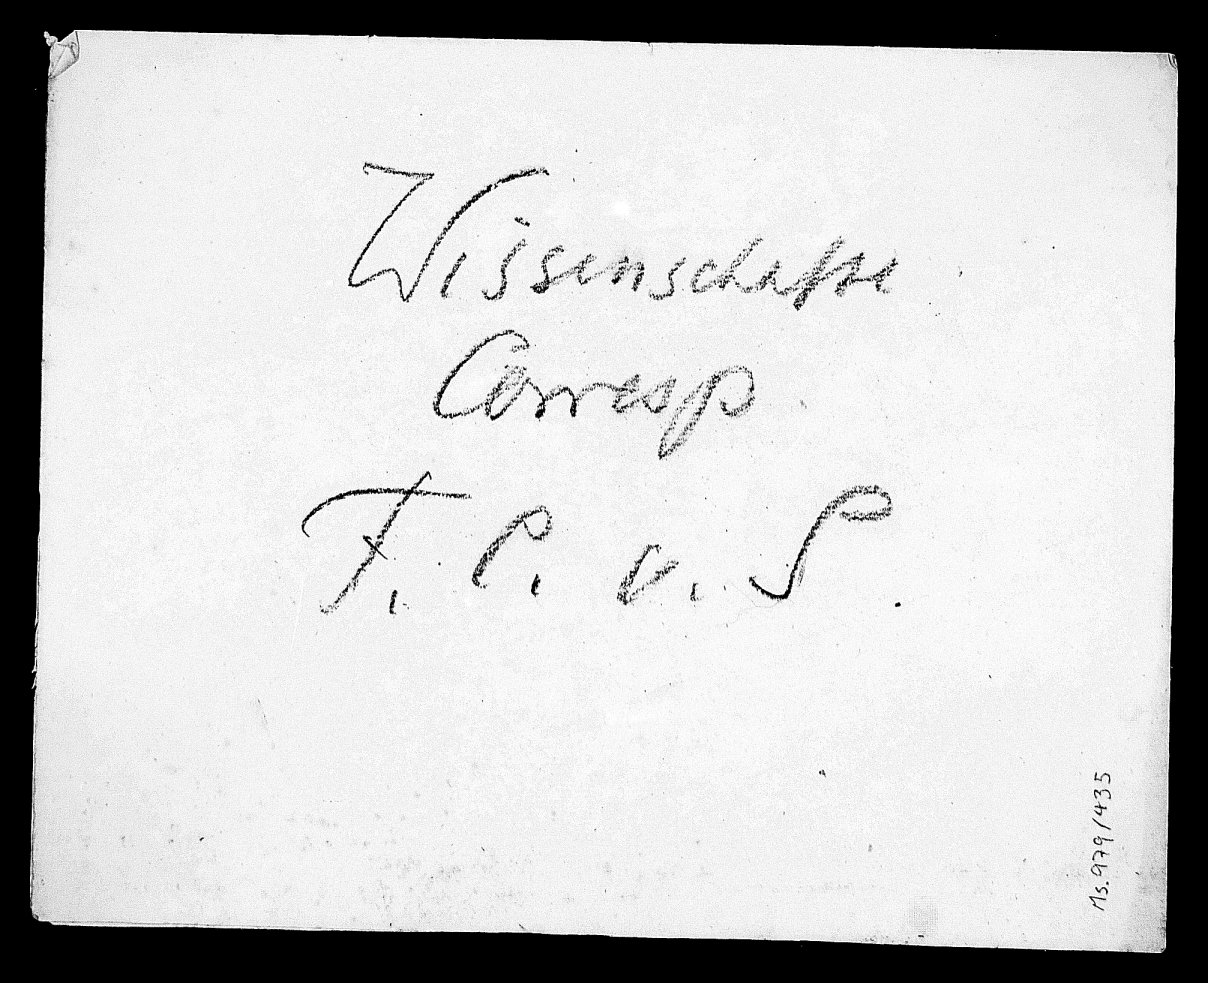 Wissenschaftl
Corresp
F. C. v. S.
Ms. 979/435